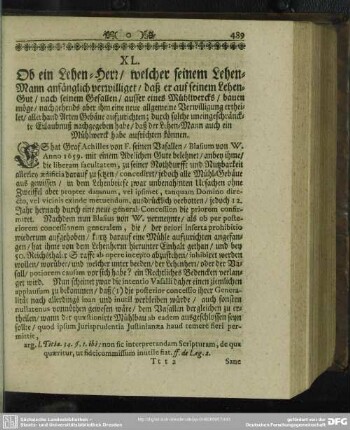 489
XL.
Ob ein Lehen-Herr/ welcher seinem Lehen-
Mann anfänglich verwilliget/ daß er auf seinem Lehen-
Gut/ nach seinem Gefallen/ ausser eines Mühlwercks/ bauen
möge/ nachgehends aber ihm eine neue allgemeine Verwilligung erthei-
let/ allerhand Arten Gebäue aufzurichten; durch solche uneingeschränck-
te Erlaubnuß nachgegeben habe/ daß der Lehen-Mann auch ein
Mühlwerck habe aufrichten können.
ES hat Graf Achilles von F. seinen Vasallen/ Blasium von W.
Anno 1659. mit einem Adelichen Gute belehne/ und ihme
die liberam facultatem, zu seiner Nothdurfft und Nutzbarkeit
allerley ædificia darauf zu setzen/ concediert/ jedoch alle Mühl-Gebäue
aus gewissen/ in dem Lehenbriefe zwar unbenahmten Ursachen ohne
Zweiffel aber propter damnum, vel ipsimet, tanquam Domino directo,
vel vicinis exinde metuendum, ausdrücklich verbotten/ jedoch 12.
Jahr hernach durch eine neue general Concession die priorem confir-
miret. Nachdem nun Blasius von W. vermeynte/ als ob per poste-
riorem concessionem generalem, die/ der priori inserta prohibitio
wiederum aufgehoben/ kurtz darauf eine Mühle aufzurichten angefan-
gen/ hat ihme von dem Lehenherrn hierunter Einhalt gethan/ und bey
50. Reichsthaler Straffe ab opere incepto abzustehen/ inhibiret werden
wollen/ worüber/ und welcher unter beyden/ der Lehenherr/ oder der Va-
sall/ potiorem causam vor sich habe? ein Rechtliches Bedencken verlan-
get wird. Nun scheinet zwar die intentio Vasalli daher einen ziemlichen
applausum zu bekommen/ daß/ (1) die posterior concessio ihrer Genera-
lität nach allerdings inan und inutil verbleiben würde/ auch sonsten
nullatenus vermöthen gewesen wäre/ dem Vasallen dergleichen zu er-
theilen/ wann der questionirte Mühlbau ab eadem ausgeschlossen seyn
solte/ quod ipsum Jurisprudentia Justinianæa haud temere fieri per-
mittit,
arg. l. Titia. 34. §. 1. ibi: non sic interpretandam Scripturam, de qua
quæritur, ut fideicommissum inutile fiat. ff. de Leg. 2.
Ttt 2 Sane
Sächsische Landesbibliothek –
Staats- und Universitätsbibliothek Dresden
gefördert von der
Deutschen Forschungsgemeinschaft
DFG